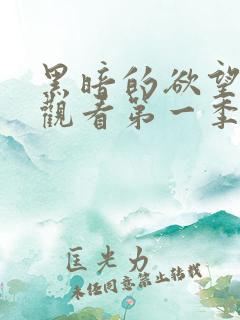 黑暗的欲望
觀看第一季
匡光力
未经同意禁止转载